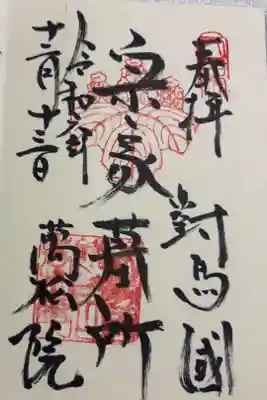 奉拝
對馬國
宗家墓所
令和
十二月十三日
萬松院